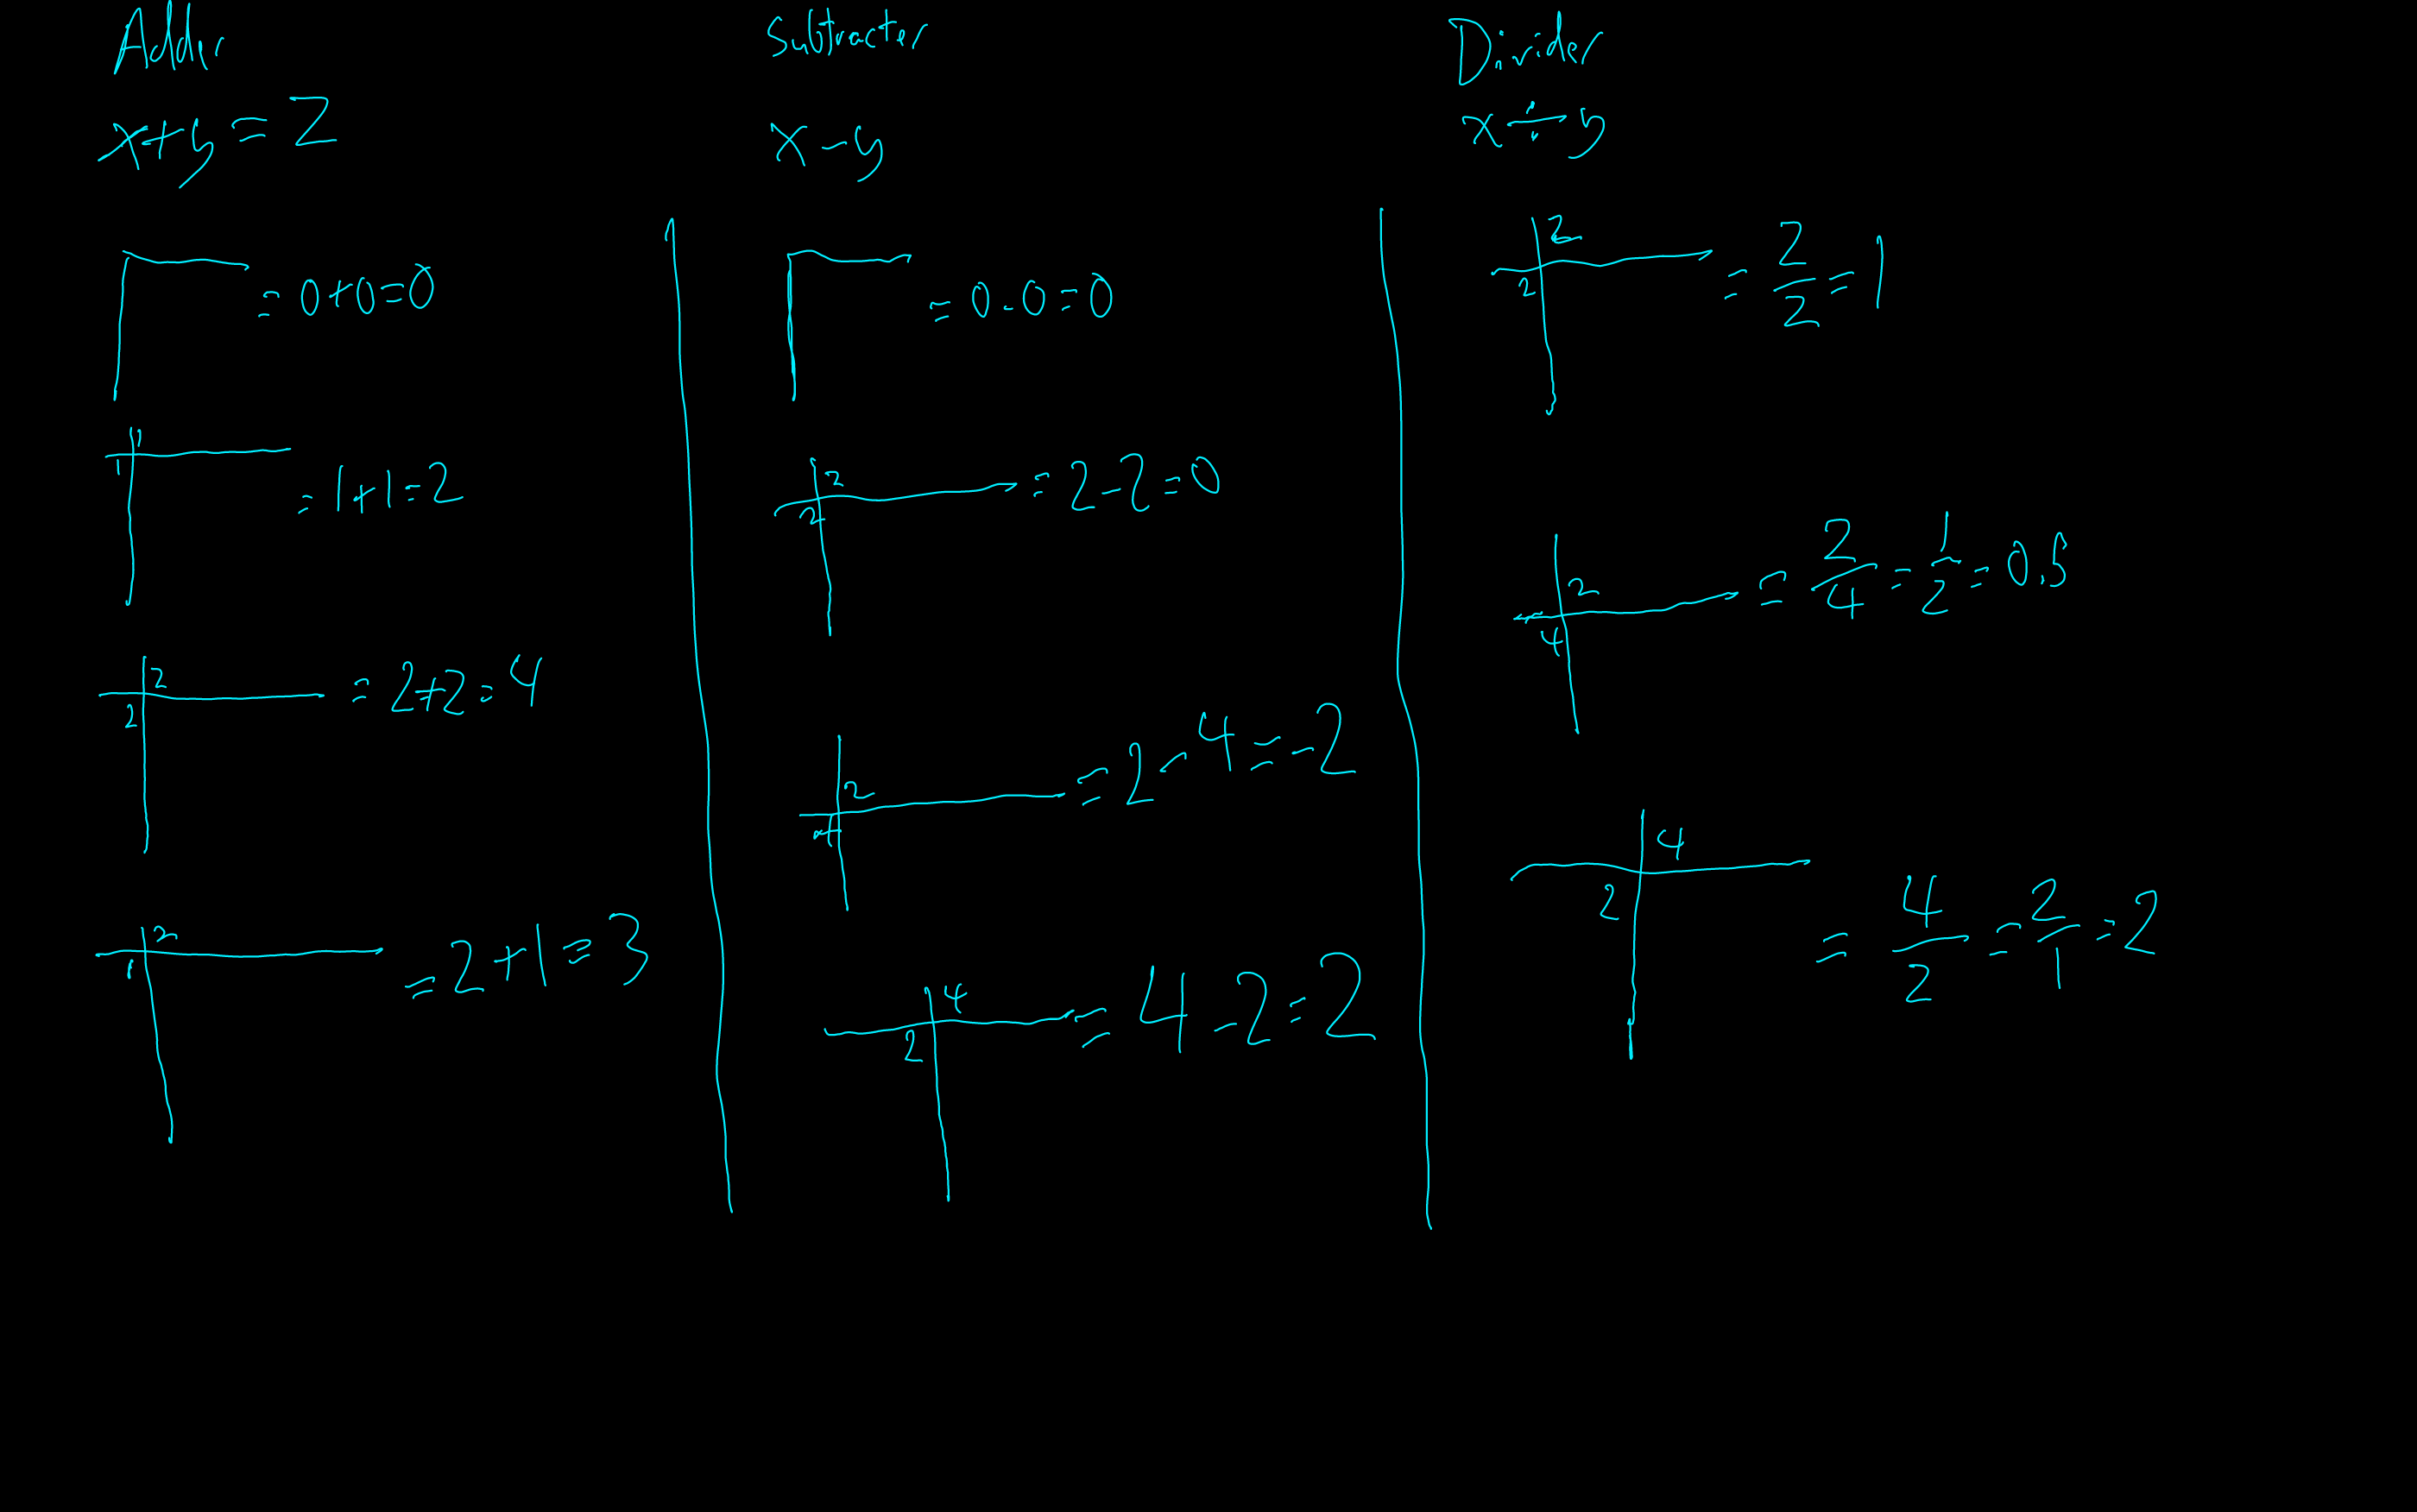 Adder
x+y=Z
=0+0=0
1
1
=1+1=2
2
2
=2+2=4
2
1
=2+1=3
Subtracter
x-y
=0-0=0
2
2
=2-2=0
2
4
=2-4=-2
4
2
=4-2=2
Divider
x÷y
2
2
=2/2=1
2
4
=2/4=1/2=0.5
4
2
=4/2=2/1=2